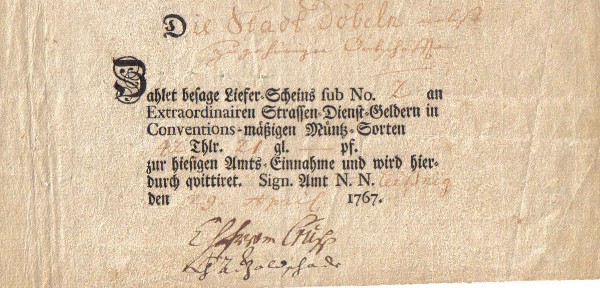 Die Stadt Döbeln
Zahlet besage Liefer-Scheins sub No. 2 an
Extraordinairen Strassen-Dienst-Geldern in
Conventions-mäßigen Müntz-Sorten
92 Thlr. 21 gl. — pf.
zur hiesigen Amts-Einnahme und wird hier-
durch qvittiret. Sign. Amt N. N. Leißnig
den 29 April 1767.